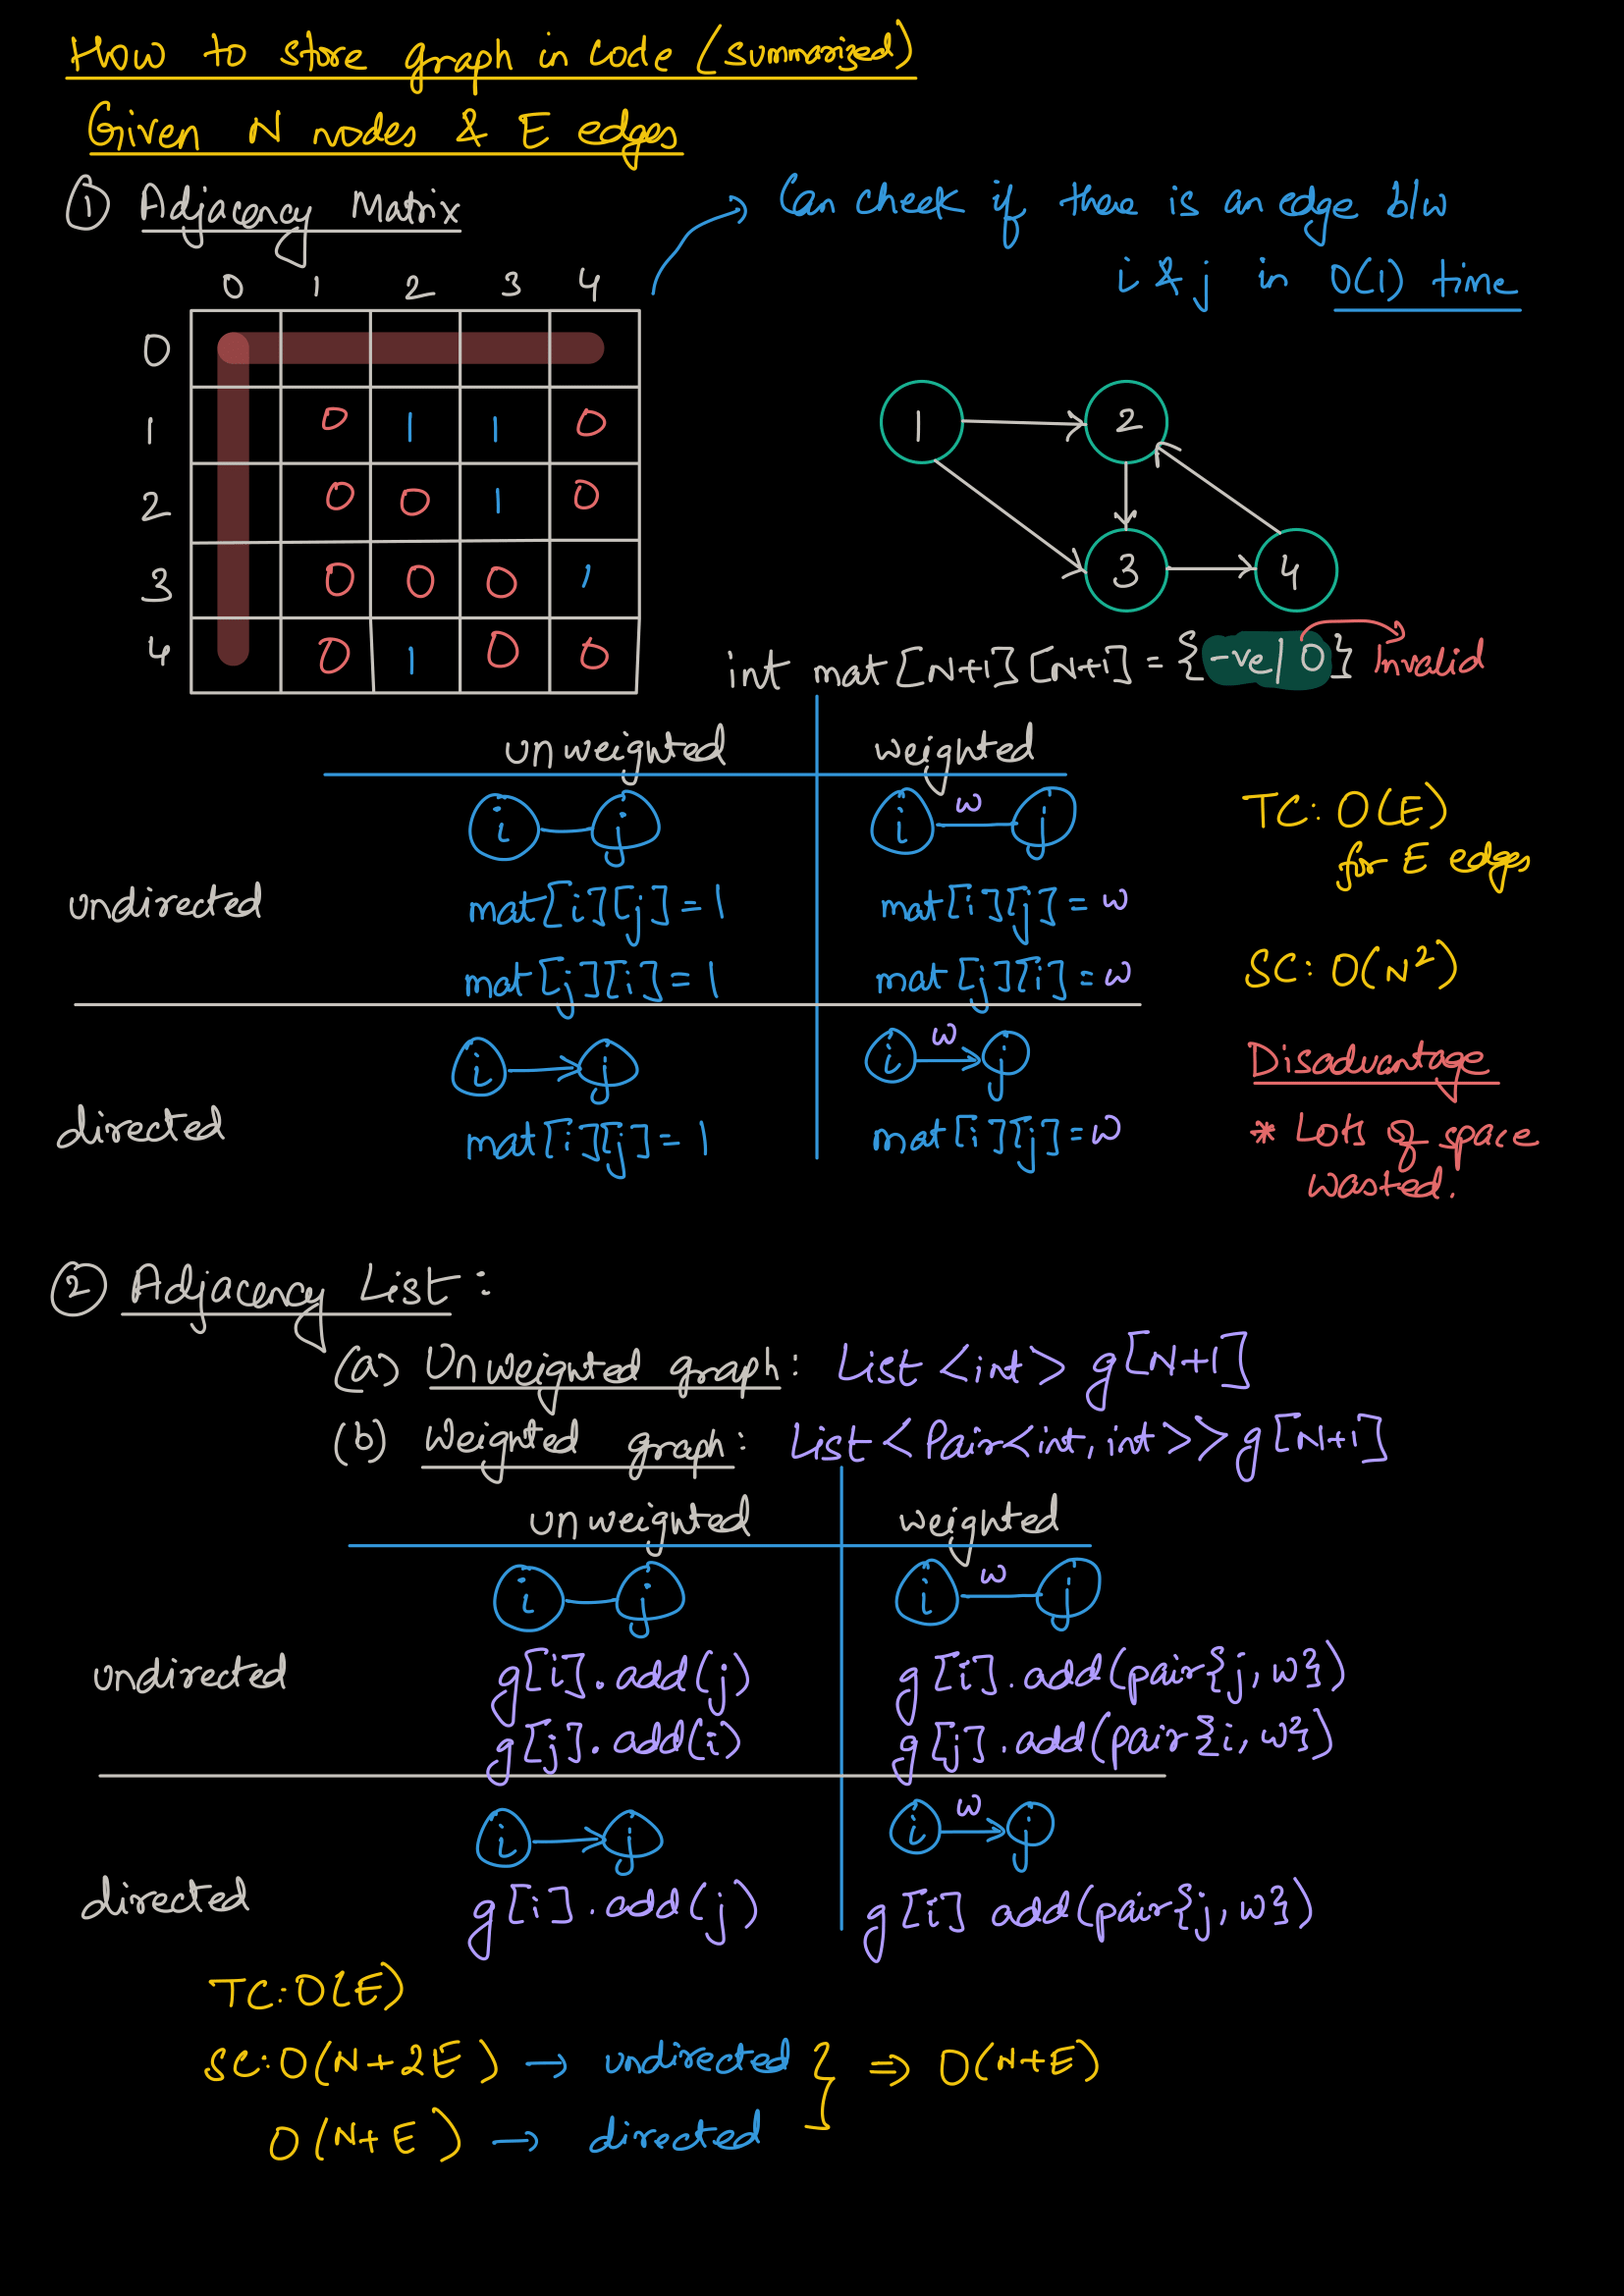 How to store graph in code (summarized)
Given N nodes & E edges
① Adjacency Matrix
→ Can check if there is an edge b/w
i & j in O(1) time
0 1 2 3 4
0
1 0 1 1 0
2 0 0 1 0
3 0 0 0 1
4 0 1 0 0
1 2
3 4
int mat[N+1][N+1] = {-ve/ 0} Invalid
unweighted weighted
i j i w j
undirected
mat[i][j] = 1 mat[i][j] = w
mat[j][i] = 1 mat[j][i] = w
i → j i w → j
directed
mat[i][j] = 1 mat[i][j] = w
TC: O(E)
for E edges
SC: O(N²)
Disadvantage
* Lots of space
wasted.
② Adjacency List :
(a) Unweighted graph : List <int> g[N+1]
(b) Weighted graph : List < Pair<int, int >> g[N+1]
unweighted weighted
i j i w j
undirected
g[i].add(j) g[i].add(pair{j, w})
g[j].add(i) g[j].add(pair{i, w})
i → j i w → j
directed
g[i].add(j) g[i] add(pair{j, w})
TC: O(E)
SC: O(N+2E) → undirected } => O(N+E)
O(N+E) → directed